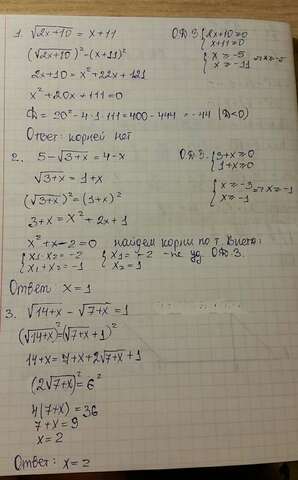 1. √2x+10 = x+11 О.Д.З. {2x+10≥0
x+11≥0
(√2x+10)² = (x+11)² {x ≥ -5
x ≥ -11 => x ≥ -5
2x+10 = x²+22x+121
x²+20x+111=0
D = 20²-4·1·111=400-444=-44 (D<0)
Ответ: корней нет
2. 5-√3+x = 4-x О.Д.З. {3+x≥0
1+x≥0
√3+x = 1+x
(√3+x)² = (1+x)² {x ≥ -3
x ≥ -1 => x ≥ -1
3+x = x²+2x+1
x²+x-2=0 найдем корни по т. Виета:
{x₁·x₂=-2 {x₁=-2 - не уд. О.Д.З.
x₁+x₂=-1 x₂=1
Ответ: x=1
3. √14+x - √7+x = 1
(√14+x)² = (√7+x +1)²
14+x = 7+x+2√7+x +1
(2√7+x)² = 6²
4(7+x)=36
7+x=9
x=2
Ответ: x=2